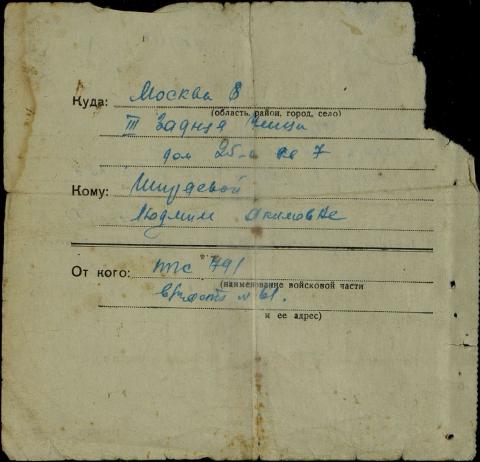 Куда: Москва 8
(область, район, город, село)
III
дом 25-а кв 7
Кому:
Людмиле Акимовне
От кого: ппс 791
(наименование войсковой части
в/часть № 61.
и ее адрес)